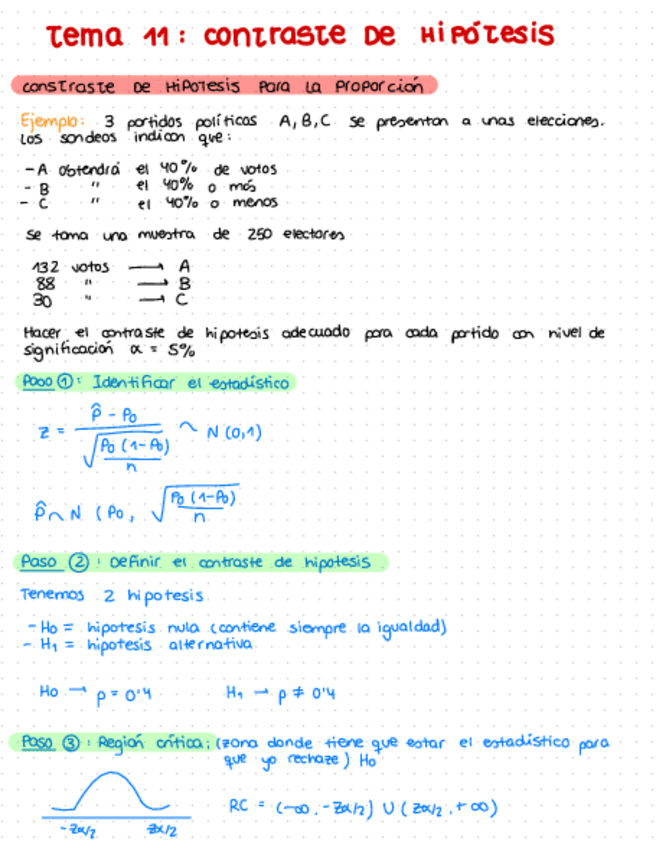 Tema 11: contraste de Hipótesis
constraste de Hipotesis para la proporción
Ejemplo: 3 partidos políticos A, B, C se presentan a unas elecciones.
Los sondeos indican que:
- A obtendrá el 40% de votos
- B " el 40% o más
- C " el 40% o menos
Se toma una muestra de 250 electores
132 votos → A
88 " → B
30 " → C
Hacer el contraste de hipotesis adecuado para cada partido con nivel de
significación α = 5%
Paso ①: Identificar el estadístico
z = (p̂ - p₀) / √(p₀ (1-p₀) / n) ~ N (0,1)
p̂ ~ N (p₀, √(p₀ (1-p₀) / n)
Paso ②: Definir el contraste de hipotesis
Tenemos 2 hipotesis
- H₀ = hipotesis nula (contiene siempre la igualdad)
- H₁ = hipotesis alternativa
H₀ → p = 0'4 H₁ → p ≠ 0'4
Paso ③: Región crítica: (zona donde tiene que estar el estadístico para
que yo rechaze) H₀
RC = (-∞, -Zα/2) ∪ (Zα/2, +∞)
-Zα/2 Zα/2